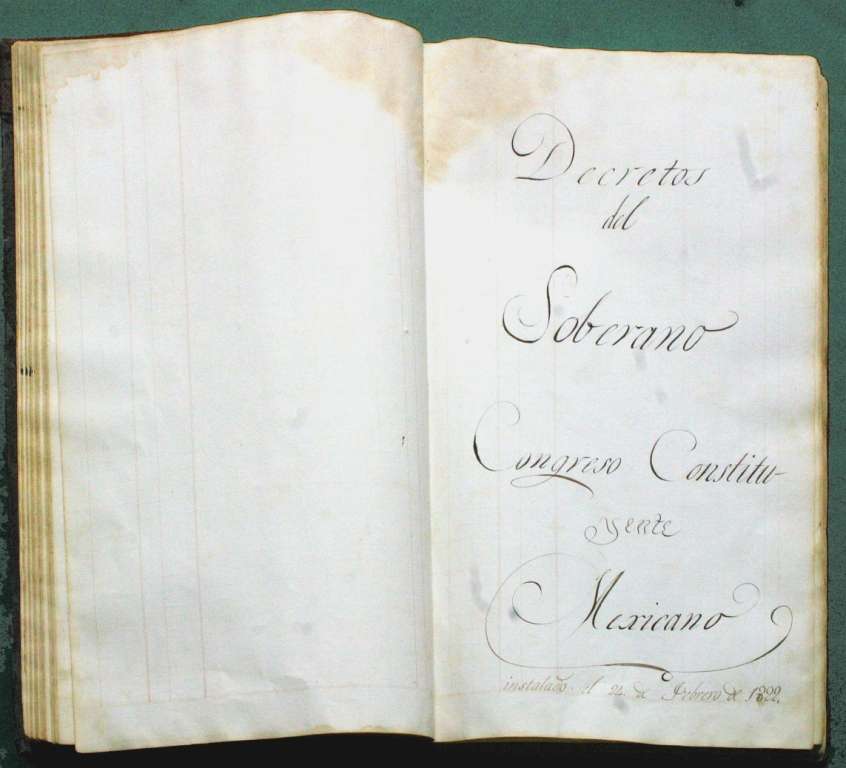 Decretos
del
Soberano
Congreso Constitu-
yente
Mexicano
instalado el 24 de Febrero de 1822.